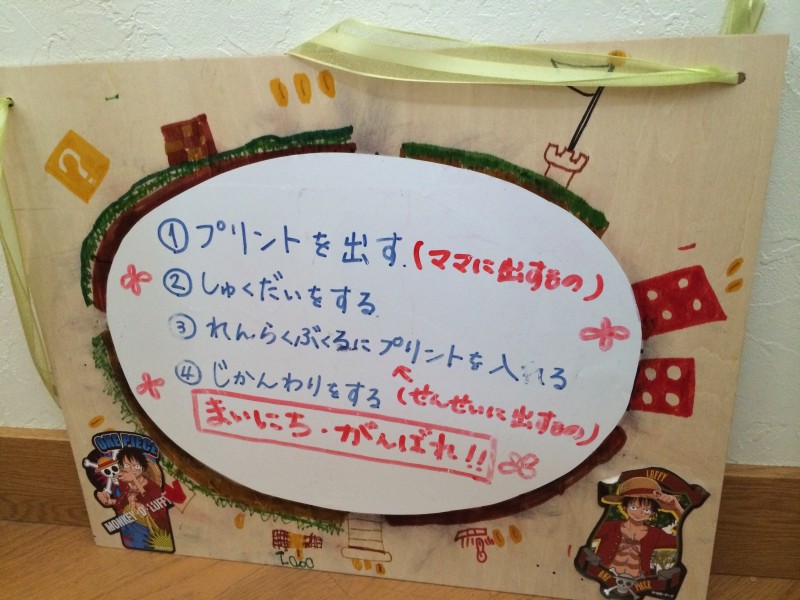 ①プリントを出す.(ママに出すもの)
②しゅくだいをする
③れんらくぶくろにプリントを入れる
④じかんわりをする
(せんせいに出すもの)
まいにち・がんばれ!!
?
ONE PIECE
MONKEY・D・LUFFY
LUFFY
ONE PIECE